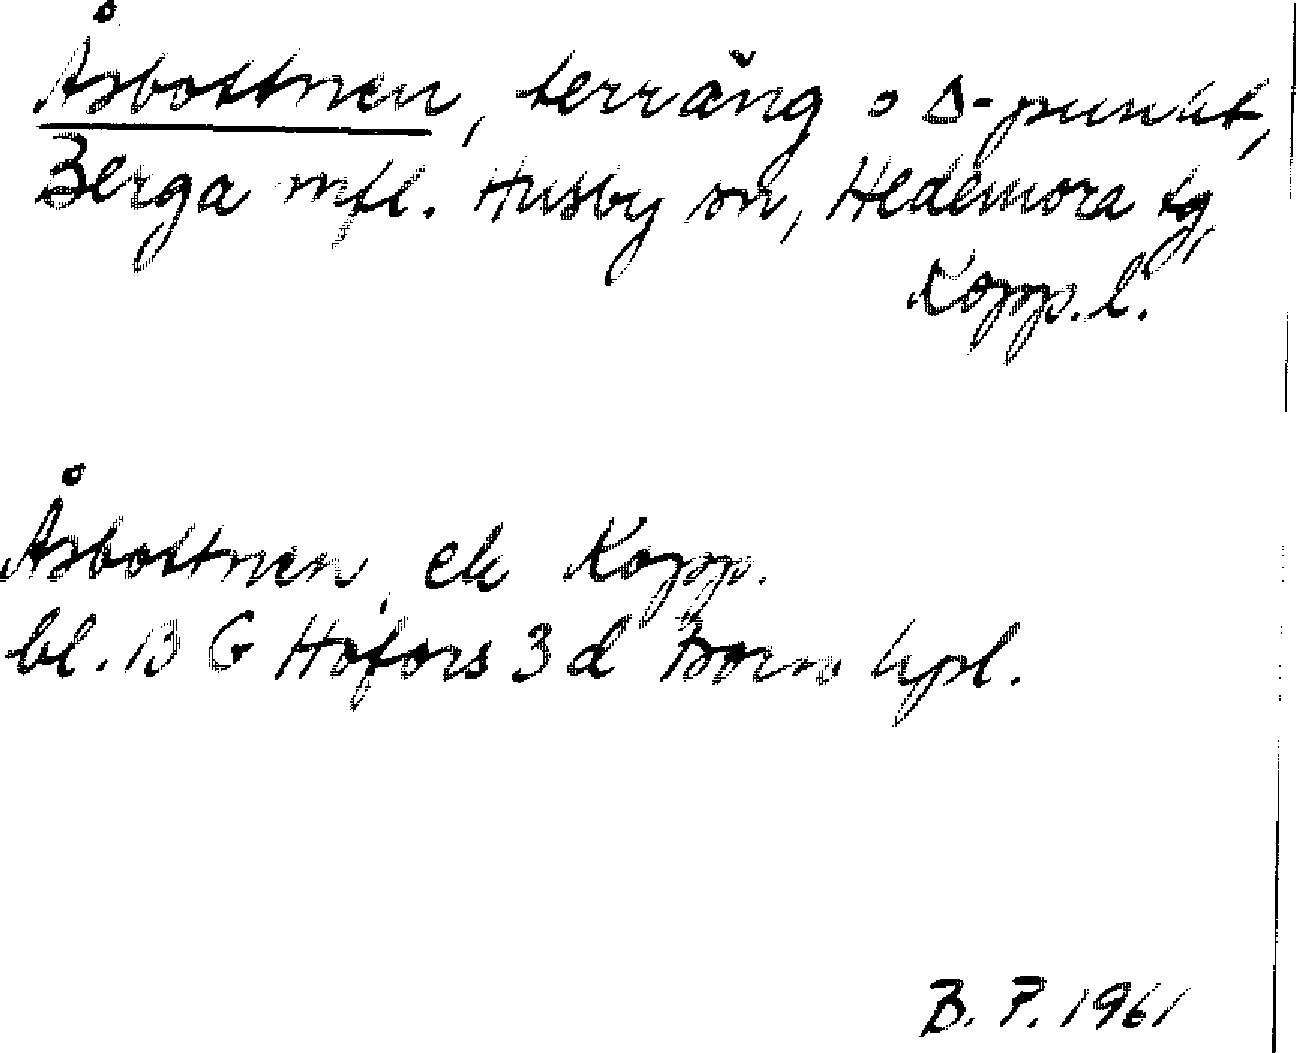 Åsbottnen, terräng o Δ-punkt,
Berga mfl. Husby sn, Hedemora tg,
Kopp. l.
Åsbottnen, ek Kopp.
bl. 13 G Hofors 3 d hpl.
B. P. 1961